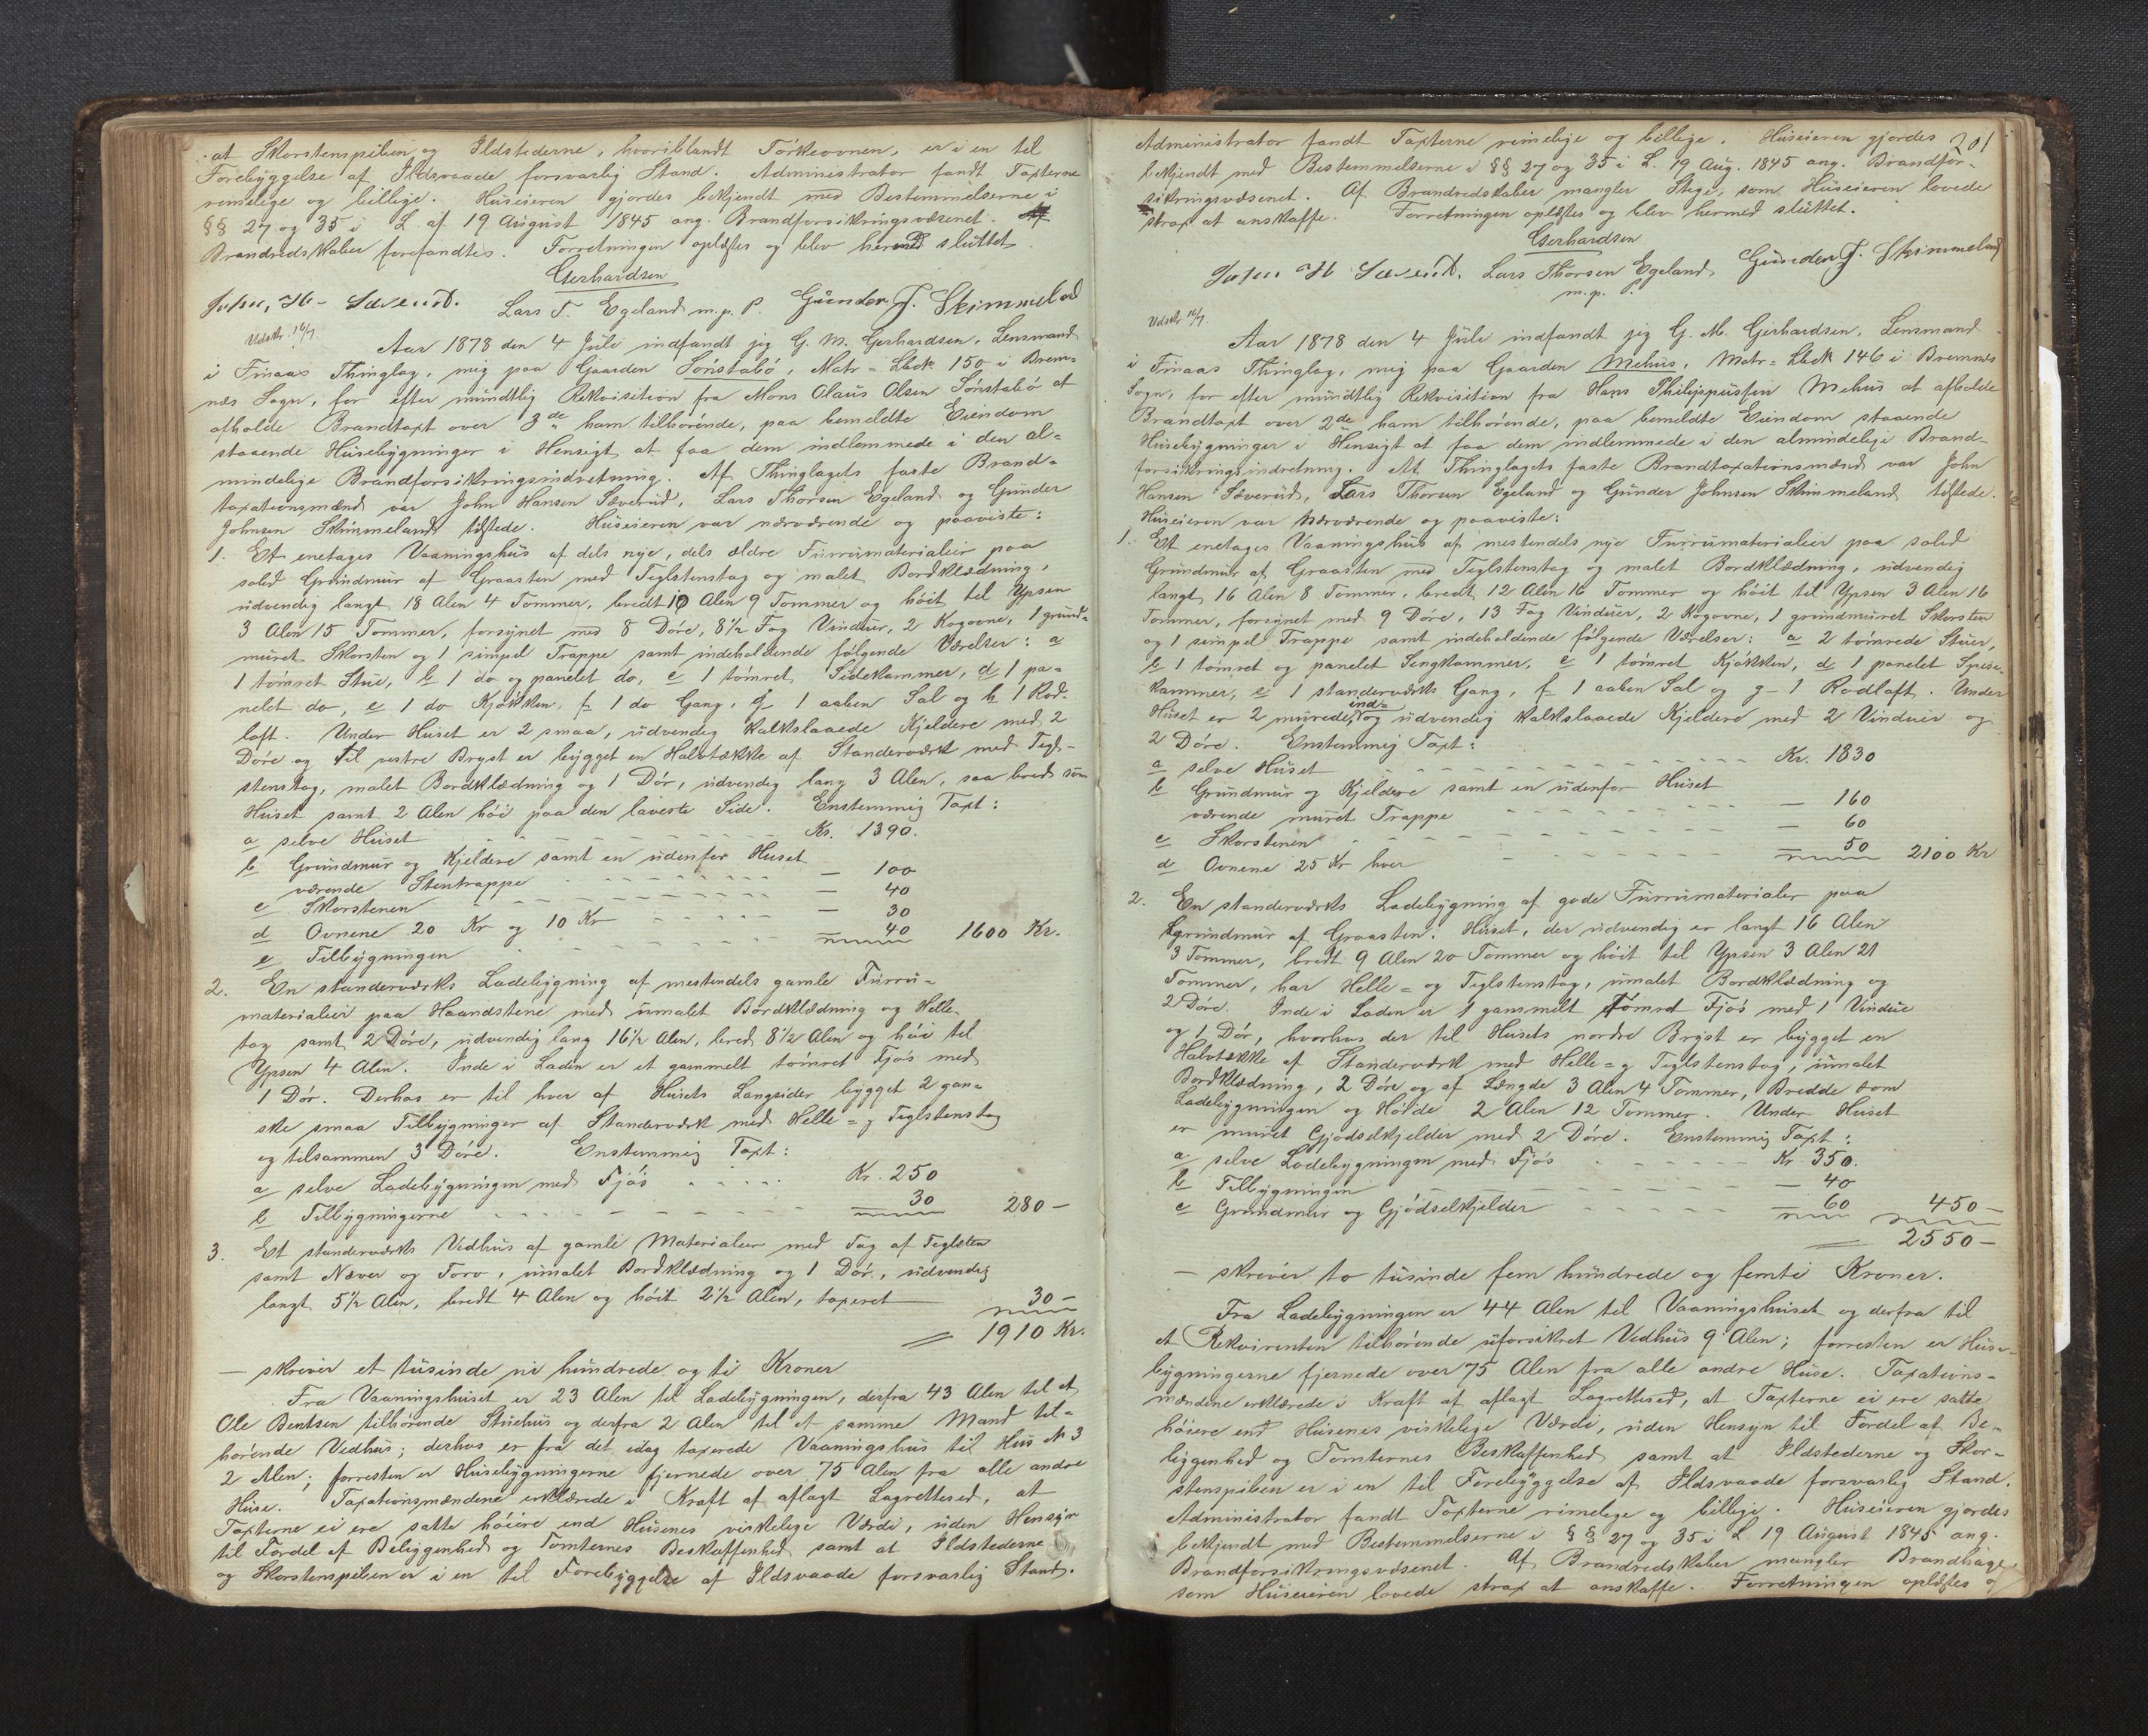 at Skorstenspiben og Ildstederne, hvoriblandt Törkeovnen, er i en til
Forebyggelse af Ildsvaade forsvarlig Stand. Administrator fandt Taxterne
rimelige og billige. Huseieren gjordes bekjendt med Bestemmelserne i
§§ 27 og 35 i L. af 19 August 1845 ang. Brandforsikringsvæsenet.
Brandredskaber forefandtes. Forretningen oplæstes og blev hermed sluttet.
Gerhardsen
John, H- Sæverud. Lars T. Egeland m.p.P. Gunder J. Skimmeland
Udskr. 16/7.
Aar 1878 den 4 Juli indfandt jeg G. M. Gerhardsen, Lensmand
i Finaas Thinglag, mig paa Gaarden Sönstabö, Matr=Lbok 150 i Brem=
næs Sogn, for efter mundtlig Rekvisition fra Mons Olaus Olsen Sönstabö at
afholde Brandtaxt over 3de ham tilhörende, paa bemeldte Eiendom
staaende Husebygninger i Hensigt at faa dem indlemmede i den al=
mindelige Brandforsikringsindretning. Af Thinglagets faste Brand=
taxationsmænd var John Hansen Sæverud, Lars Thorsen Egeland og Gunder
Johnsen Skimmeland tilstede. Huseieren var nærværende og paaviste:
1. Et enetages Vaaningshus af dels nye, dels ældre Furrumaterialier paa
solid Grundmur af Graasten med Teglstenstag og malet Bordklædning,
udvendig langt 18 Alen 4 Tommer, bredt 10 Alen 9 Tommer og höit til Ypsen
3 Alen 15 Tommer, forsynet med 8 Döre, 8½ Fag Vinduer, 2 Kogovne, 1 grund=
muret Skorsten og 1 simpel Trappe samt indeholdende følgende Værelser: a
1 tömret Stue, b 1 do og panelet do, c 1 tömret Sidekammer, d 1 pa=
nelet do, e 1 do Kjökken, f 1 do Gang, g 1 aaben Sal og h 1 Rod-
loft. Under Huset er 2 smaa, udvendig kalkslaaede Kjeldere med 2
Döre og til vestre Bryst er bygget en Halvtække af Standerværk med Tegl-
stenstag, malet Bordklædning og 1 Dör, udvendig lang 3 Alen, saa bred som
Huset samt 2 Alen höi paa den laveste Side. Enstemmig Taxt:
a selve Huset Kr. 1390.
b Grundmur og Kjeldere samt en udenfor Huset
værende Stentrappe — 100
c Skorstenen — 40
d Ovnene 20 Kr og 10 Kr — 30
e Tilbygningen 40 1600 Kr.
2. En standerværks Ladebygning af mestendels gamle Furru=
materialier paa Haandstene med umalet Bordklædning og Helle
tag samt 2 Döre, udvendig lang 16½ Alen, bred 8½ Alen og höi til
Ypsen 4 Alen. Inde i Laden er et gammelt tömret Fjös med
1 Dör. Derhos er til hver af Husets Langsider bygget 2 gan=
ske smaa Tilbygninger af Standerværk med Helle=g Teglstenstag
og tilsammen 3 Döre. Enstemmig Taxt:
a selve Ladebygningen med Fjös Kr. 250
b Tilbygningerne 30 280 —
3. Et standerværks Vedhus af gamle Materialier med Tag af Teglsten
samt Næver og Torv, umalet Bordklædning og 1 Dör, udvendig
langt 5½ Alen, bredt 4 Alen og höit 2½ Alen, taxeret 30 —
= 1910 Kr.
— skriver et tusinde ni hundrede og ti Kroner
Fra Vaaningshuset er 23 Alen til Ladebygningen, derfra 43 Alen til et
Ole Bentsen tilhörende Stuehus og derfra 2 Alen til et samme Mand til=
hörende Vedhus; derhos er fra det idag taxerede Vaaningshus til Hus N 3
2 Alen; forresten er Husebygningerne fjernede over 75 Alen fra alle andre
Huse. Taxationsmændene erklærede i Kraft af aflagt Lagrettesed, at
Taxterne ei ere satte höiere end Husenes virkelige Værdi, uden Hensyn
til Fordel af Beliggenhed og Tomternes Beskaffenhed samt at Ildstederne
og Skorstenspiben er i en til Forebyggelse af Ildsvaade forsvarlig Stand.
201
Administrator fandt Taxterne rimelige og billige. Huseieren gjordes
bekjendt med Bestemmelserne i §§ 27 og 35 i L. 19 Aug. 1845 ang. Brandfor-
sikringsvæsenet. Af Brandredskaber mangler Stige, som Huseieren lovede
strax at anskaffe. Forretningen oplæstes og blev hermed sluttet.
Gerhardsen
John H Sæverud. Lars Thorsen Egeland Gunder J. Skimmeland
m.p.P.
Udskr 16/7.
Aar 1878 den 4 Juli indfandt jeg G. M. Gerhardsen, Lensmand
i Finaas Thinglag, mig paa Gaarden Mehus, Matr=Lbok 146 i Bremnæs
Sogn, for efter mundtlig Rekvisition fra Hans Philippussen Mehus at afholde
Brandtaxt over 2de ham tilhörende, paa bemeldte Eiendom staaende
Husebygninger i Hensigt at faa dem indlemmede i den almindelige Brand-
forsikringsindretning. Af Thinglagets faste Brandtaxationsmænd var John
Hansen Sæverud, Lars Thorsen Egeland og Gunder Johnsen Skimmeland tilstede.
Huseieren var nærværende og paaviste:
1. Et enetages Vaaningshus af mestendels nye Furrumaterialier paa solid
Grundmur af Graasten med Teglstenstag og malet Bordklædning, udvendig
langt 16 Alen 8 Tommer, bredt 12 Alen 16 Tommer og höit til Ypsen 3 Alen 16
Tommer, forsynet med 9 Döre, 13 Fag Vinduer, 2 Kogovne, 1 grundmuret Skorsten
og 1 simpel Trappe samt indeholdende følgende Værelser: a 2 tömrede Stuer,
b 1 tömret og panelet Sengkammer, c 1 tömret Kjökken, d 1 panelet Spise-
kammer, e 1 standerværks Gang, f 1 aaben Sal og g — 1 Rodloft. Under
Huset er 2 murede, ind= og udvendig kalkslaaede Kjeldere med 2 Vinduer og
2 Döre. Enstemmig Taxt:
a selve Huset Kr. 1830
b Grundmur og Kjeldere samt en udenfor Huset
værende muret Trappe — 160
c Skorstenen — 60
d Ovnene 25 Kr hver 50 2100 Kr
2. En standerværks Ladebygning af gode Furrumaterialer paa
Grundmur af Graasten. Huset, der udvendig er langt 16 Alen
3 Tommer, bredt 9 Alen 20 Tommer og höit til Ypsen 3 Alen 21
Tommer, har Helle= og Teglstenstag, umalet Bordklædning og
2 Döre. Inde i Laden er 1 gammelt tömret Fjös med 1 Vindue
og 1 Dör, hvorhos der til Husets nordre Bryst er bygget en
Halvtække af Standerværk med Helle=g Teglstenstag, umalet
Bordklædning, 2 Döre og af Længde 3 Alen 4 Tommer, Bredde som
Ladebygningen og Höide 2 Alen 12 Tommer. Under Huset
er muret Gjödselkjelder med 2 Döre. Enstemmig Taxt:
a selve Ladebygningen med Fjös Kr. 350.
b Tilbygningen — 40
c Grundmur og Gjödselkjelder 60 450 —
= 2550 —
— skriver to tusinde fem hundrede og femti Kroner.
Fra Ladebygningen er 44 Alen til Vaaningshuset og derfra til
et Rekvirenten tilhörende uforsikret Vedhus 9 Alen; forresten er Huse-
bygningerne fjernede over 75 Alen fra alle andre Huse. Taxations-
mændene erklærede i Kraft af aflagt Lagrettesed, at Taxterne ei ere satte
höiere end Husenes virkelige Værdi, uden Hensyn til Fordel af Be-
liggenhed og Tomternes Beskaffenhed samt at Ildstederne og Skor-
stenspiben er i en til Forebyggelse af Ildsvaade forsvarlig Stand.
Administrator fandt Taxterne rimelige og billige. Huseieren gjordes
bekjendt med Bestemmelserne i §§ 27 og 35 i L. 19 August 1845 ang.
Brandforsikringsvæsenet. Af Brandredskaber mangler Brandhage
som Huseieren lovede strax at anskaffe. Forretningen oplæstes og